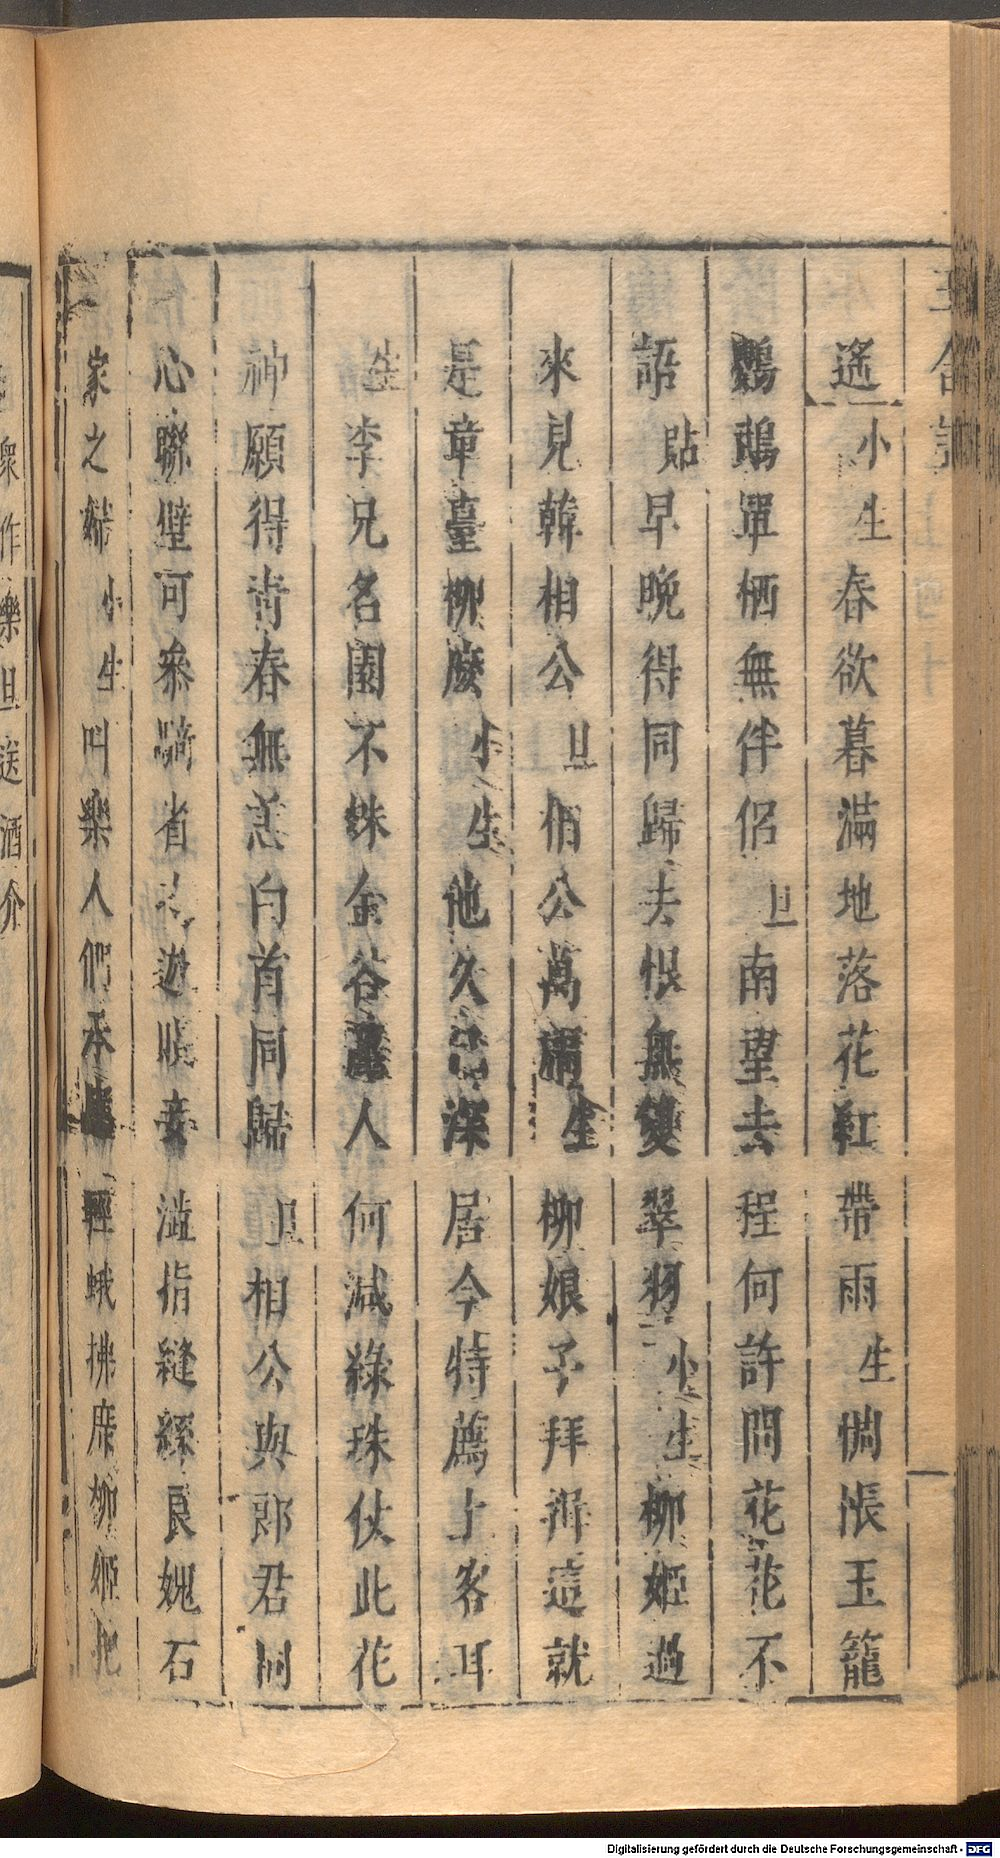 遙小生春欲暮滿地落花紅帶雨生惆悵玉籠
鸚鵡單栖無伴侶旦南望去程何許問花花不
語貼早晚得同歸去恨無雙翠羽小生柳姬過
來見韓相公旦相公萬福生柳娘子拜揖這就
是章臺柳麼小生他久已深居今特薦上客耳
生李兄名園不姝金谷麗人何減綠珠仗此花
神願得靑春無恙白首同歸旦相公與郎君同
心聯壁可參騎省之遊賤妾濫指縫綜良媿石
家之婦小生叫樂人們承應輕蛾拂席柳姬把
衆作樂旦送酒介
Digitalisierung gefördert durch die Deutsche Forschungsgemeinschaft - DFG